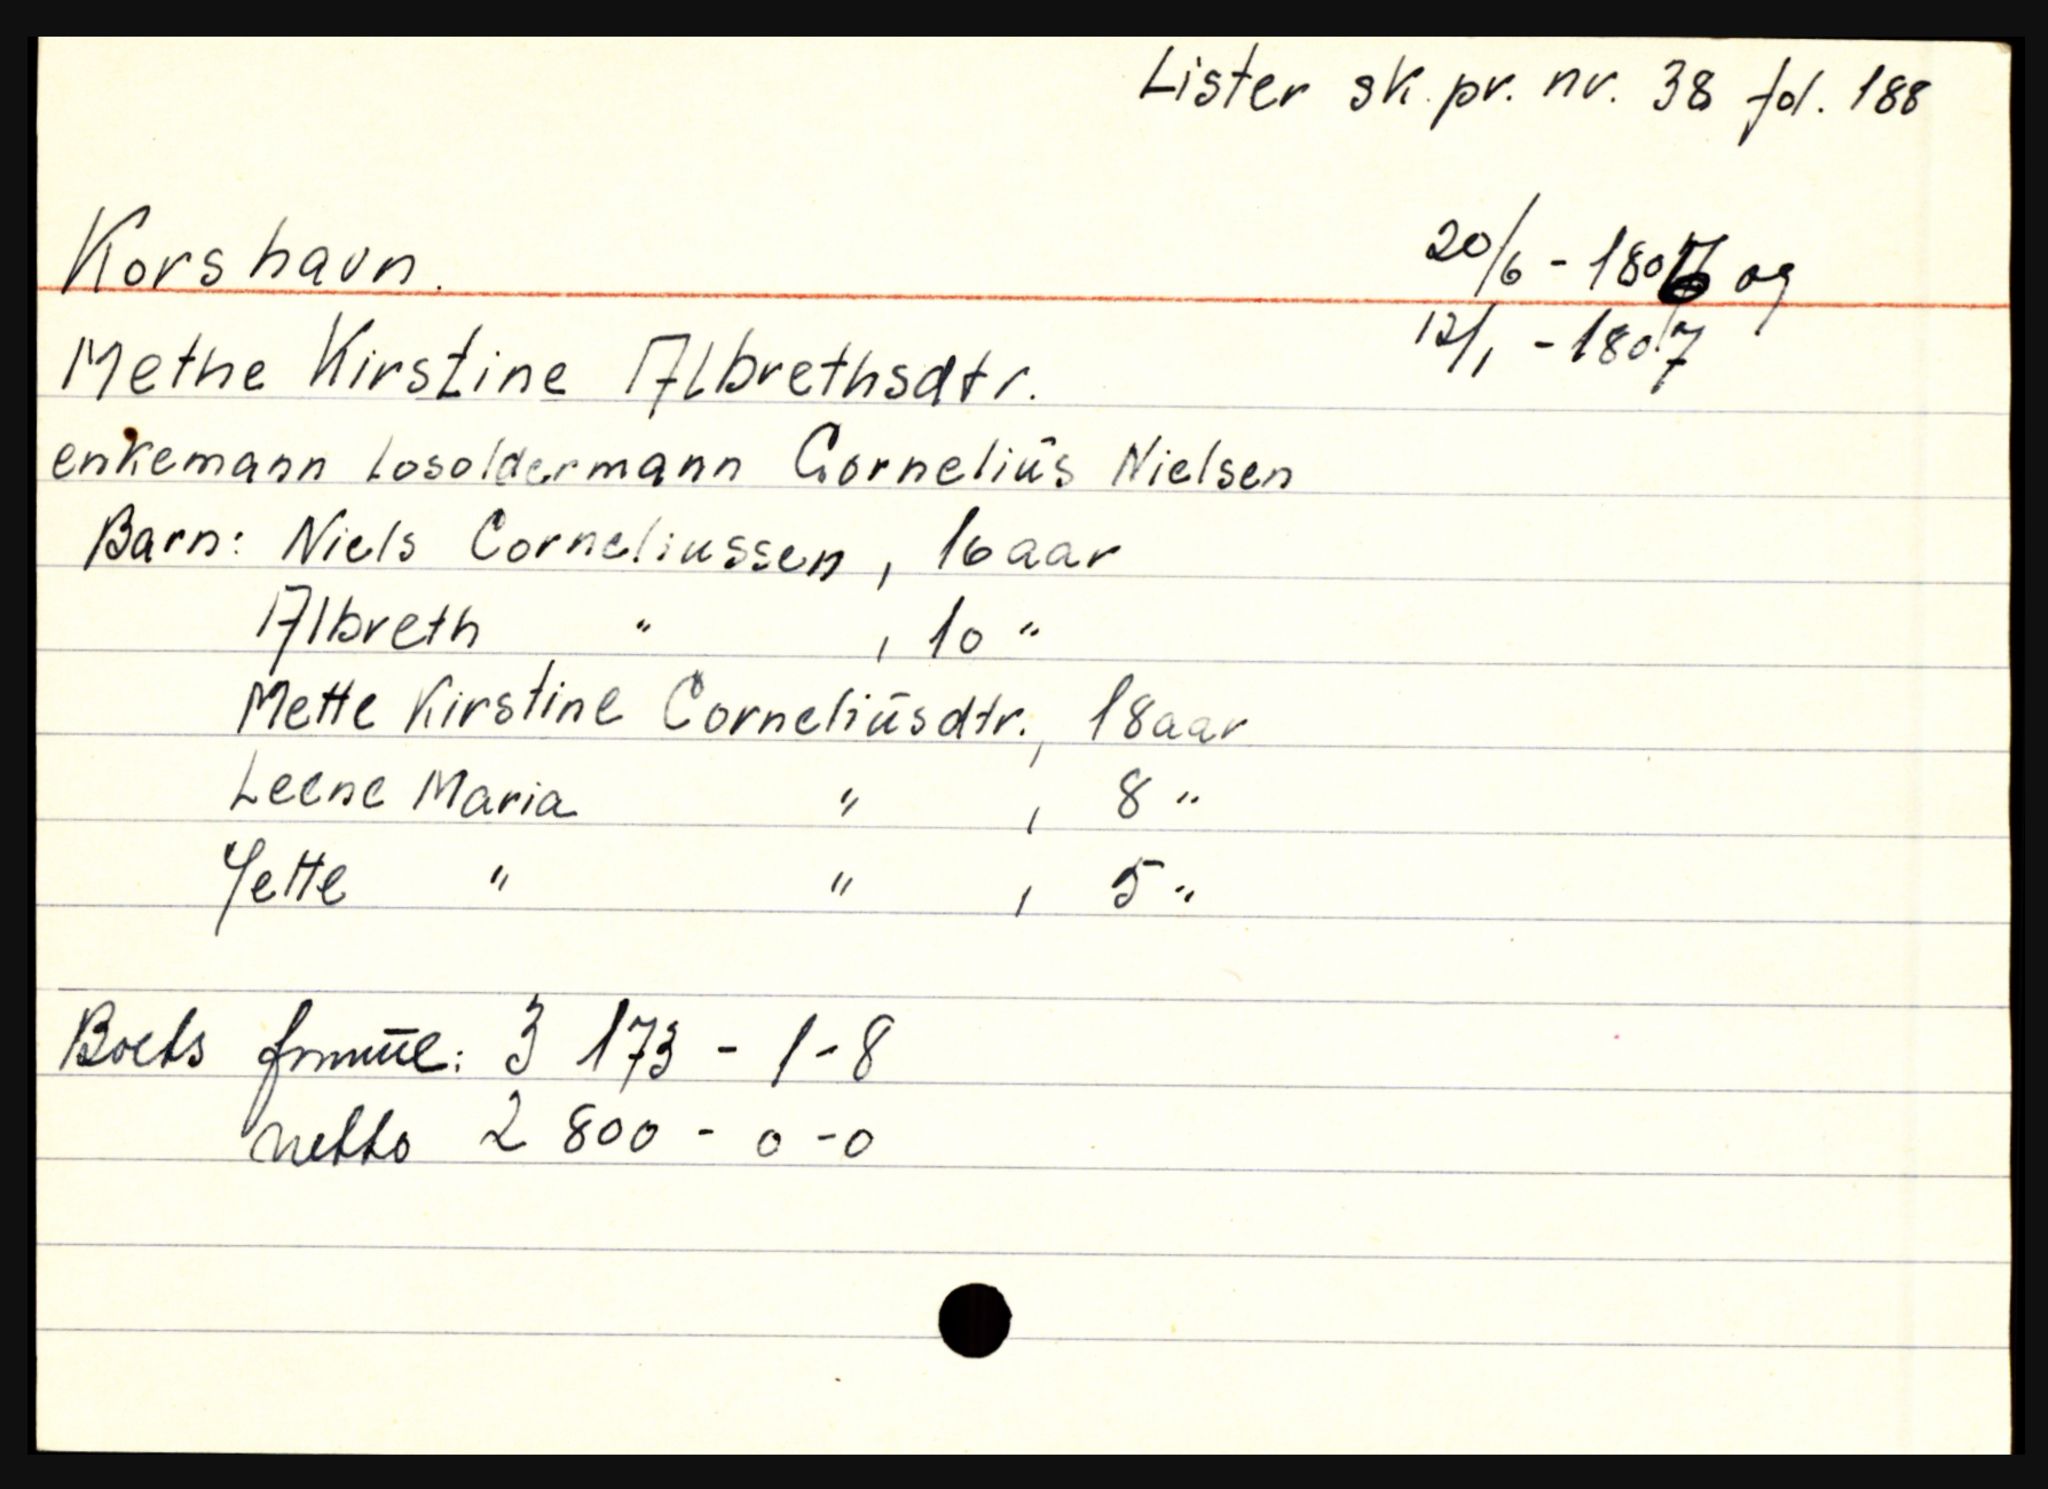 Lister sk. pr. nr. 38 fol. 188
Korshavn.
20/6 - 1806 og
12/1 - 1807
Methe Kirstine Albrethsdtr.
enkemann Losoldermann Cornelius Nielsen
Barn: Niels Corneliussen, 16 aar
Albreth " , 10 "
Mette Kirstine Corneliusdtr., 18 aar
Leene Maria " , 8 "
Yette " " , 5 "
Boets 3 173 - 1 - 8
netto 2 800 - 0 - 0